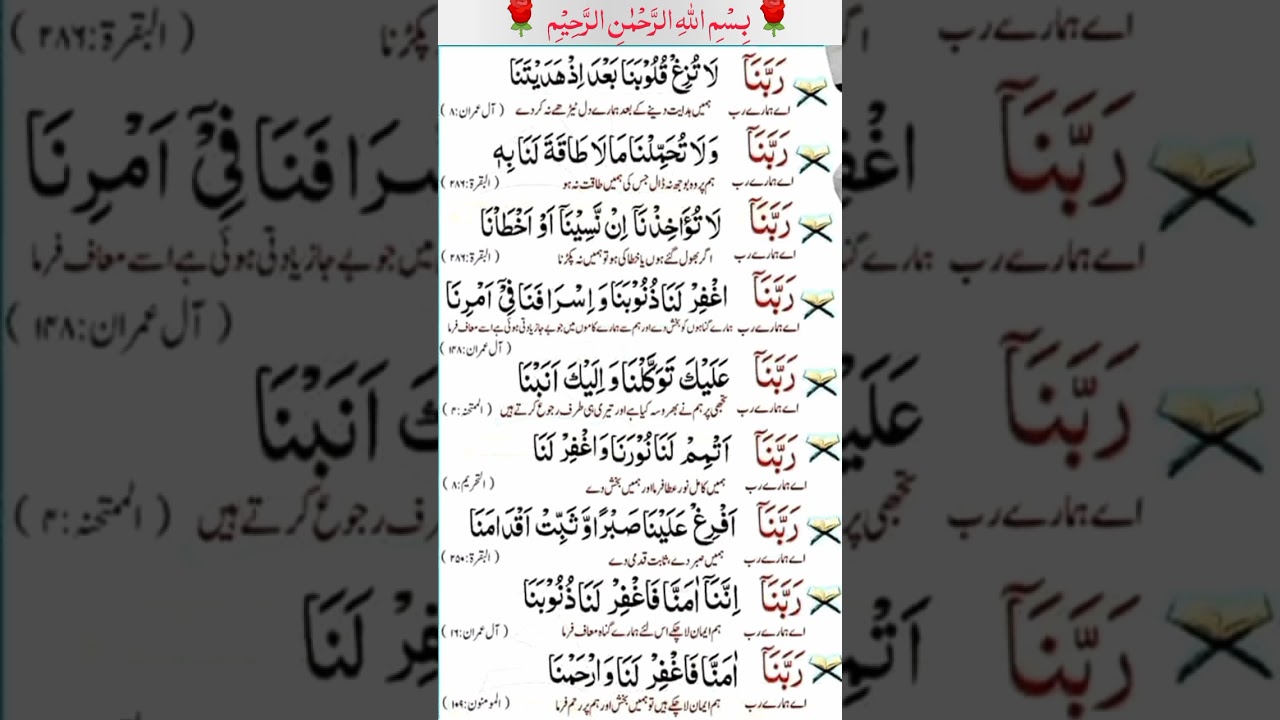 بِسْمِ اللهِ الرَّحْمٰنِ الرَّحِيْمِ
رَبَّنَآ لَا تُزِغْ قُلُوْبَنَا بَعْدَ اِذْ هَدَيْتَنَا
اے ہمارے رب ہمیں ہدایت دینے کے بعد ہمارے دل ٹیڑھے نہ کر دے ( آل عمران: ۸ )
رَبَّنَآ وَلَا تُحَمِّلْنَا مَا لَا طَاقَةَ لَنَا بِهٖ
اے ہمارے رب ہم پر وہ بوجھ نہ ڈال جس کی ہمیں طاقت نہ ہو ( البقرة: ۲۸۶ )
رَبَّنَآ لَا تُؤَاخِذْنَآ اِنْ نَّسِيْنَآ اَوْ اَخْطَاْنَا
اے ہمارے رب اگر بھول گئے ہوں یا خطا کی ہو تو ہمیں نہ پکڑنا ( البقرة: ۲۸۶ )
رَبَّنَآ اغْفِرْ لَنَا ذُنُوْبَنَا وَ اِسْرَافَنَا فِيْٓ اَمْرِنَا
اے ہمارے رب ہمارے گناہوں کو بخش دے اور ہم سے ہمارے کاموں میں جو بے جا زیادتی ہوئی ہے اسے معاف فرما
( آل عمران: ۱۴۸ )
رَبَّنَآ عَلَيْكَ تَوَكَّلْنَا وَ اِلَيْكَ اَنَبْنَا
اے ہمارے رب تجھی پر ہم نے بھروسہ کیا ہے اور تیری ہی طرف رجوع کرتے ہیں ( الممتحنہ: ۴ )
رَبَّنَآ اَتْمِمْ لَنَا نُوْرَنَا وَاغْفِرْ لَنَا
اے ہمارے رب ہمیں کامل نور عطا فرما اور ہمیں بخش دے ( التحریم: ۸ )
رَبَّنَآ اَفْرِغْ عَلَيْنَا صَبْرًا وَّ ثَبِّتْ اَقْدَامَنَا
اے ہمارے رب ہمیں صبر دے، ثابت قدمی دے ( البقرة: ۲۵۰ )
رَبَّنَآ اِنَّنَآ اٰمَنَّا فَاغْفِرْ لَنَا ذُنُوْبَنَا
اے ہمارے رب ہم ایمان لا چکے اس لئے ہمارے گناہ معاف فرما ( آل عمران: ۱۶ )
رَبَّنَآ اٰمَنَّا فَاغْفِرْ لَنَا وَارْحَمْنَا
اے ہمارے رب ہم ایمان لا چکے ہیں تو ہمیں بخش اور ہم پر رحم فرما ( المومنون: ۱۰۹ )